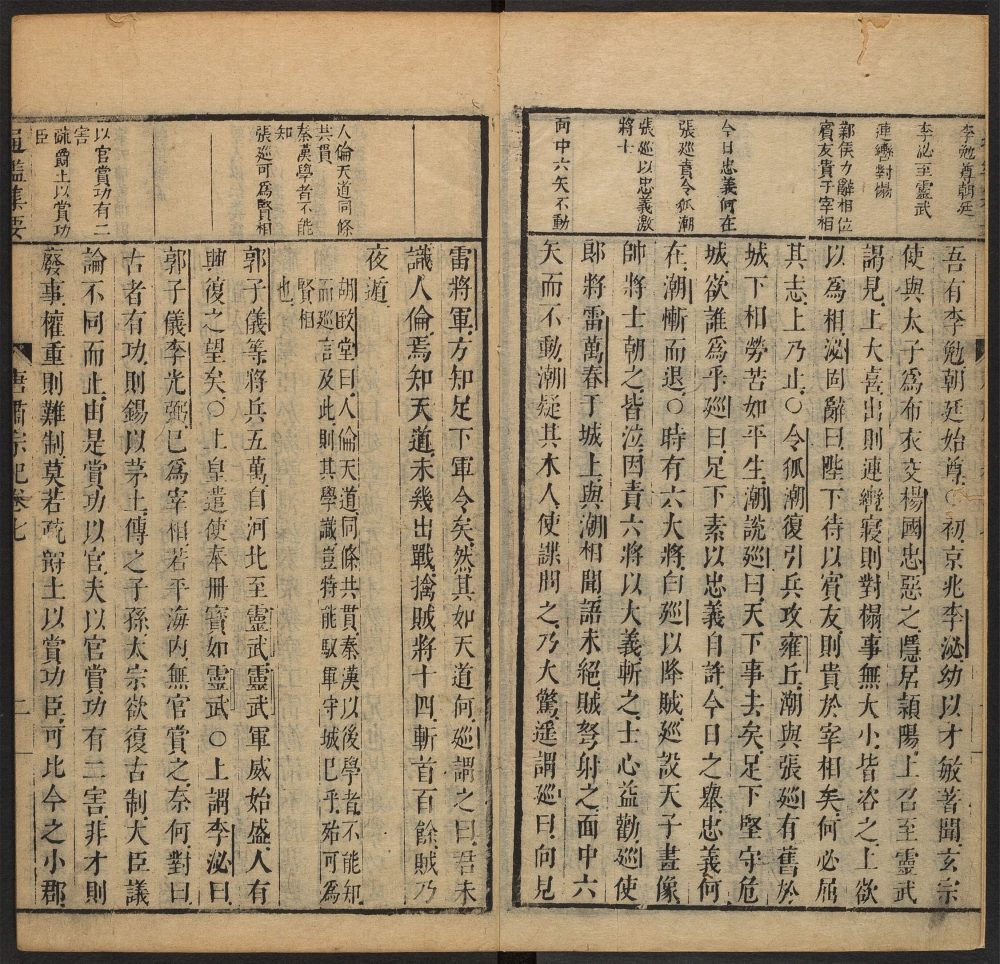 李勉尊朝廷
李泌至靈武
連轡對榻
鄴侯力辭相位
賓友貴于宰相
今日忠義何在
張廵責令狐潮
張廵以忠義激
將士
面中六矢不動
吾有李勉朝廷始尊○初京兆李泌幼以才敏著聞玄宗
使與太子爲布衣交楊國忠惡之隱居潁陽上召至靈武
謁見上大喜出則連轡寢則對榻事無大小皆咨之上欲
以爲相泌固辭曰陛下待以賓友則貴於宰相矣何必屈
其志上乃止○令狐潮復引兵攻雍丘潮與張廵有舊於
城下相勞苦如平生潮說廵曰天下事去矣足下堅守危
城欲誰爲乎廵曰足下素以忠義自許今日之舉忠義何
在潮慚而退○時有六大將白廵以降賊廵設天子畫像
帥將士朝之皆泣因責六將以大義斬之士心益勸廵使
郎將雷萬春于城上與潮相聞語未絕賊弩射之面中六
矢而不動潮疑其木人使諜問之乃大驚遥謂廵曰向見
人倫天道同條
共貫
秦漢學者不能
知
張廵可爲賢相
以官賞功有二
害
疏爵土以賞功
臣
雷將軍方知足下軍令矣然其如天道何廵謂之曰君未
識人倫焉知天道未幾出戰擒賊將十四斬首百餘賊乃
夜遁
胡致堂曰人倫天道同條共貫秦漢以後學者不能知
而廵言及此則其學識豈特能馭軍守城已乎殆可爲
賢相
也
郭子儀等將兵五萬自河北至靈武靈武軍威始盛人有
興復之望矣○上皇遣使奉冊寶如靈武○上謂李泌曰
郭子儀李光弼已爲宰相若平海內無官賞之奈何對曰
古者有功則錫以茅土傳之子孫太宗欲復古制大臣議
論不同而止由是賞功以官夫以官賞功有二害非才則
廢事權重則難制莫若疏爵土以賞功臣可比今之小郡
通鑑集要
唐肅宗紀卷七
二